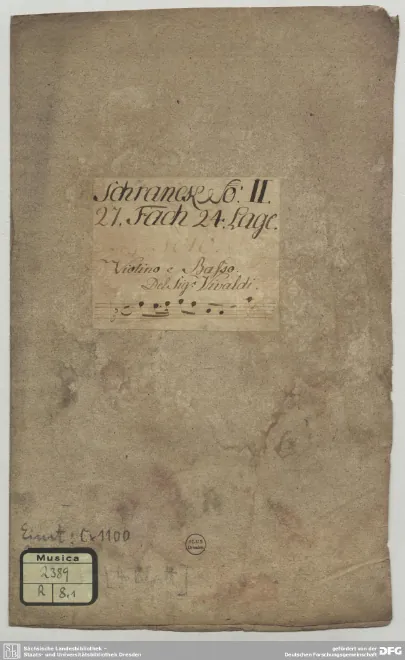 Schranck No: II.
27. Fach 24. Lage.
Violino e Basso.
Del Sigr Vivaldi.
Musica
2389
R 8,1
Sächsische Landesbibliothek –
Staats- und Universitätsbibliothek Dresden
gefördert von der
Deutschen Forschungsgemeinschaft
DFG